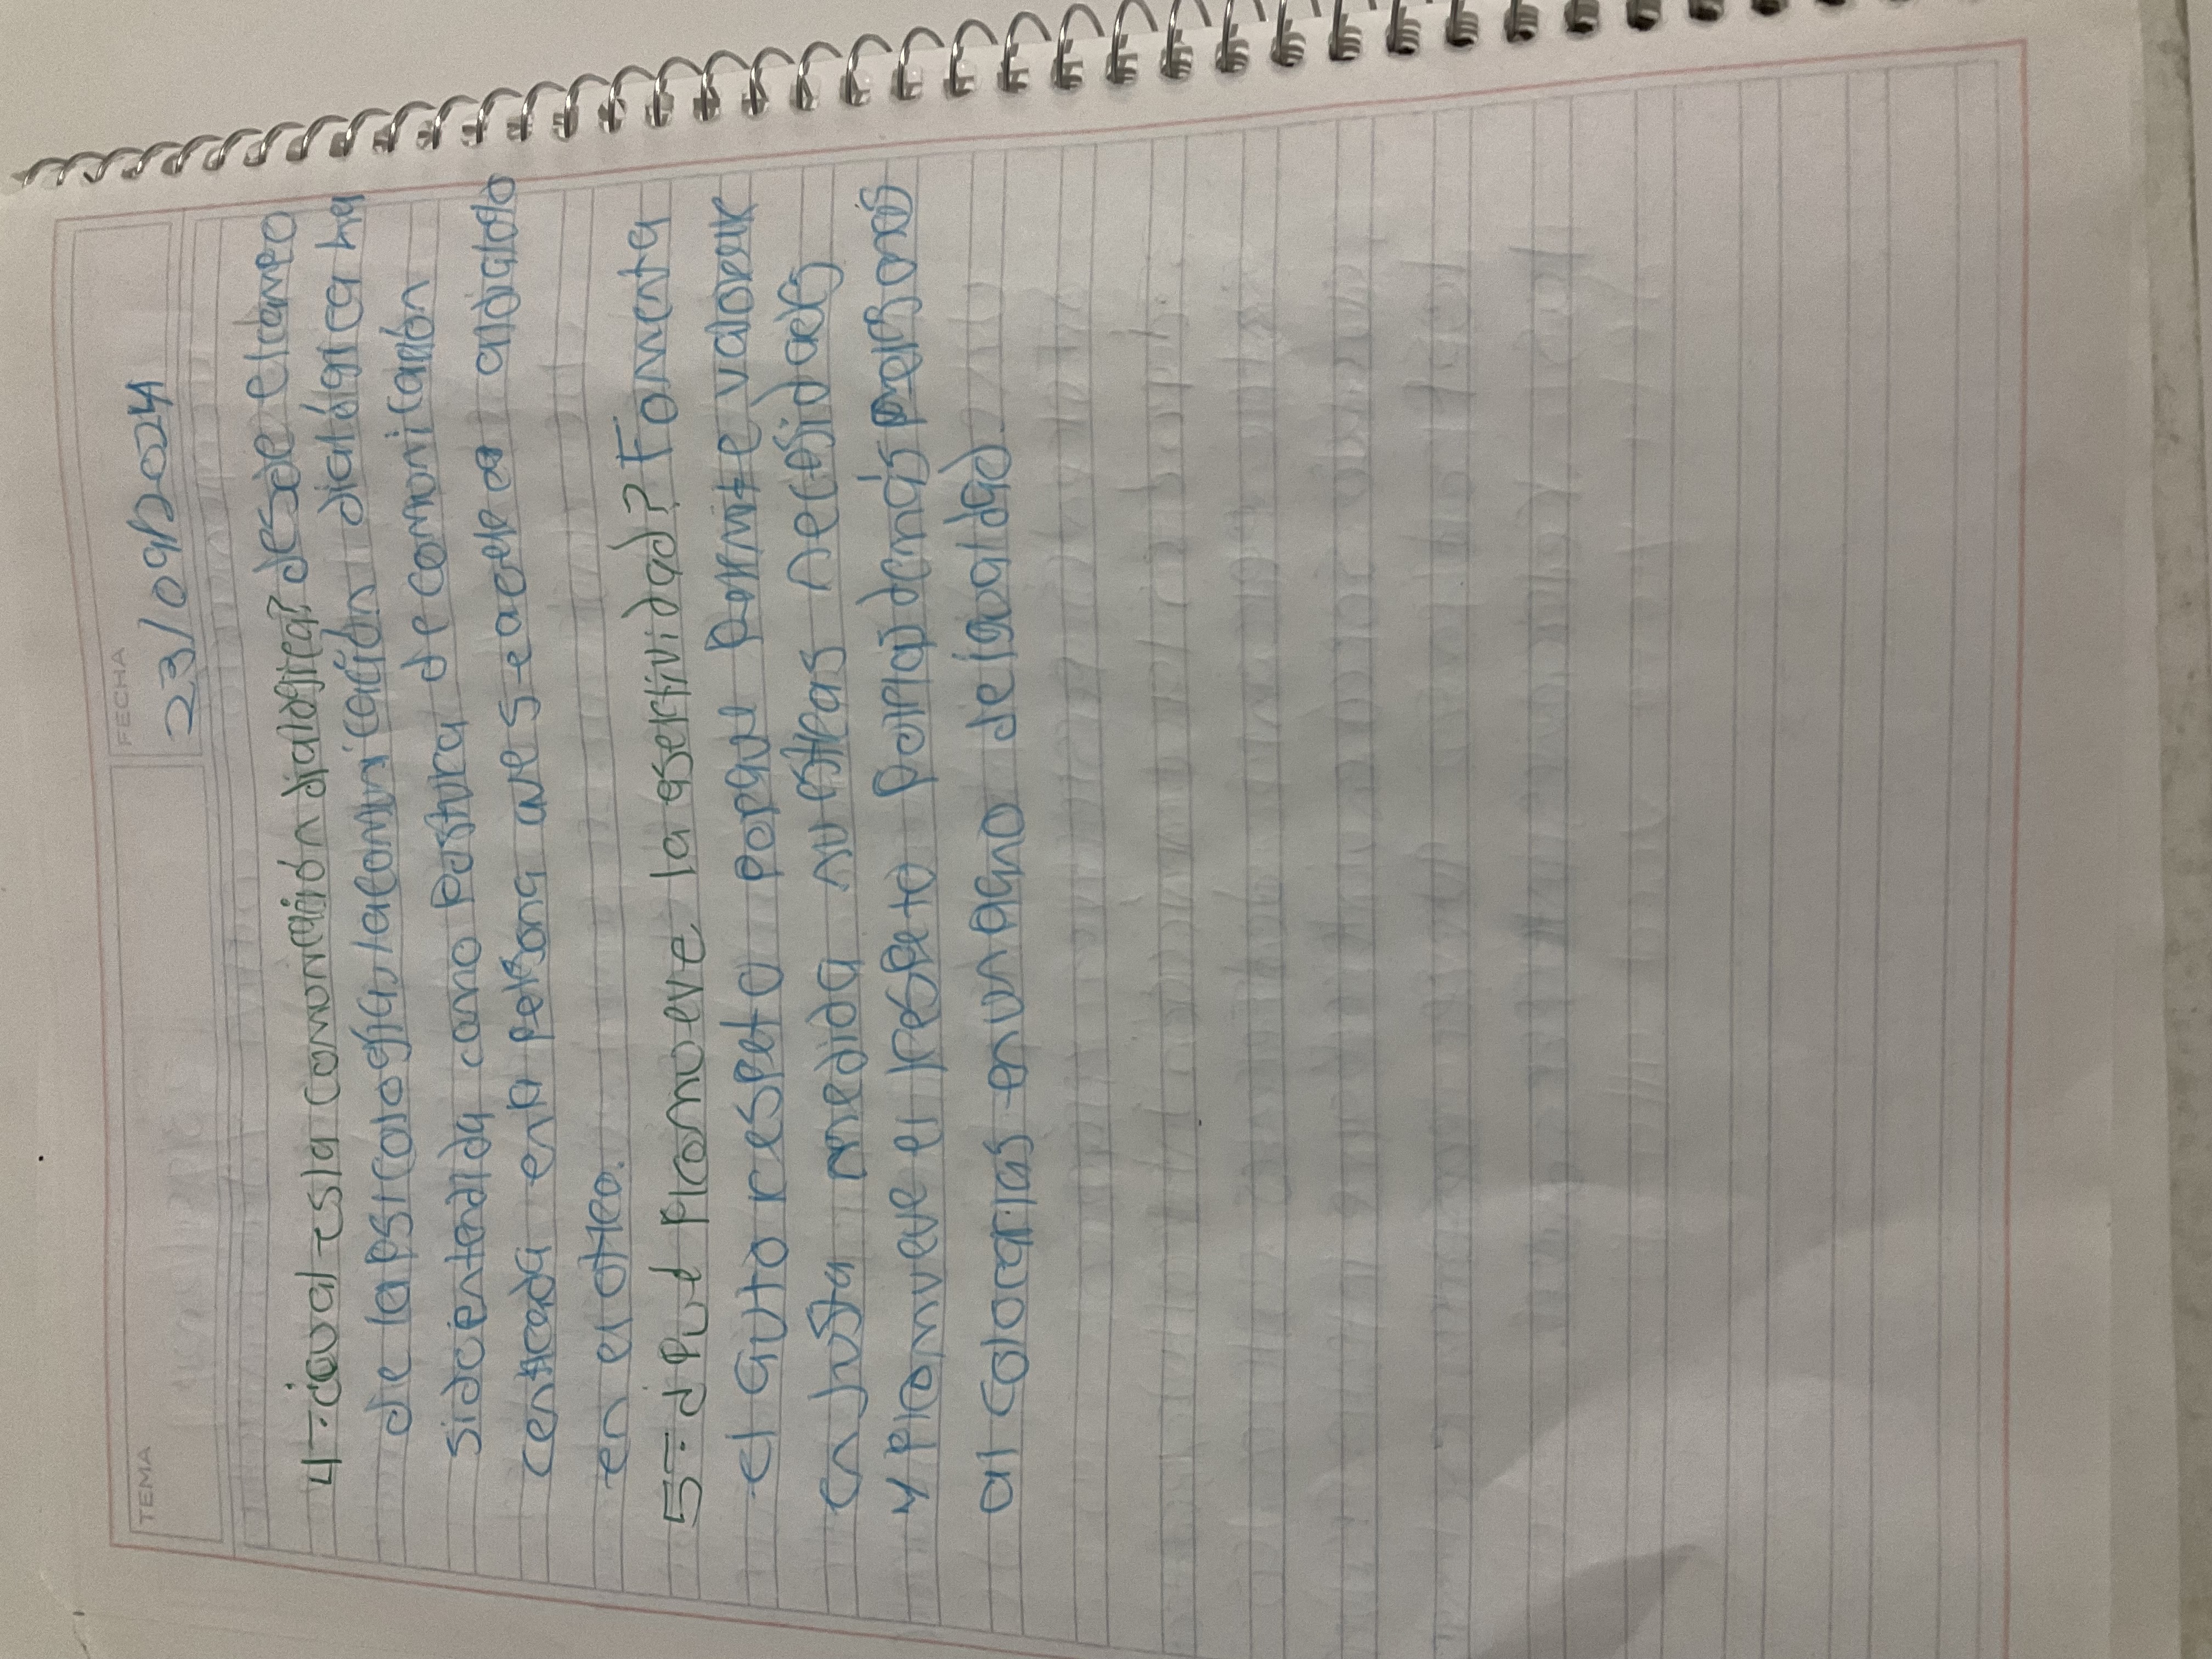 TEMA
FECHA
23/09/2024
4-¿cual es la comonicaión dialogica? desde el campo
de la psicología, la comunicación dialógica ha
sido entendida como postura de comonicación
centrada en la persona que se acerca al dialogo
en el otro.
5-¿Que promoeve la asertividad? Fomenta
el auto respeto porque permite valorar
en justa medida nuestras necesidades
y promueve el respeto por las demás personas
al colocarlas en un pleno de igualdad.